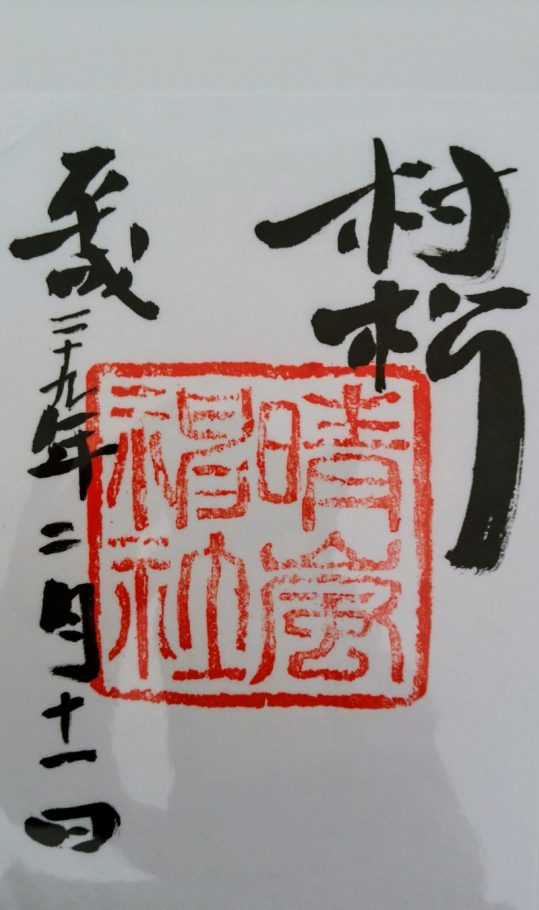 村松
晴嵐
神社
平成二十九年二月十一日